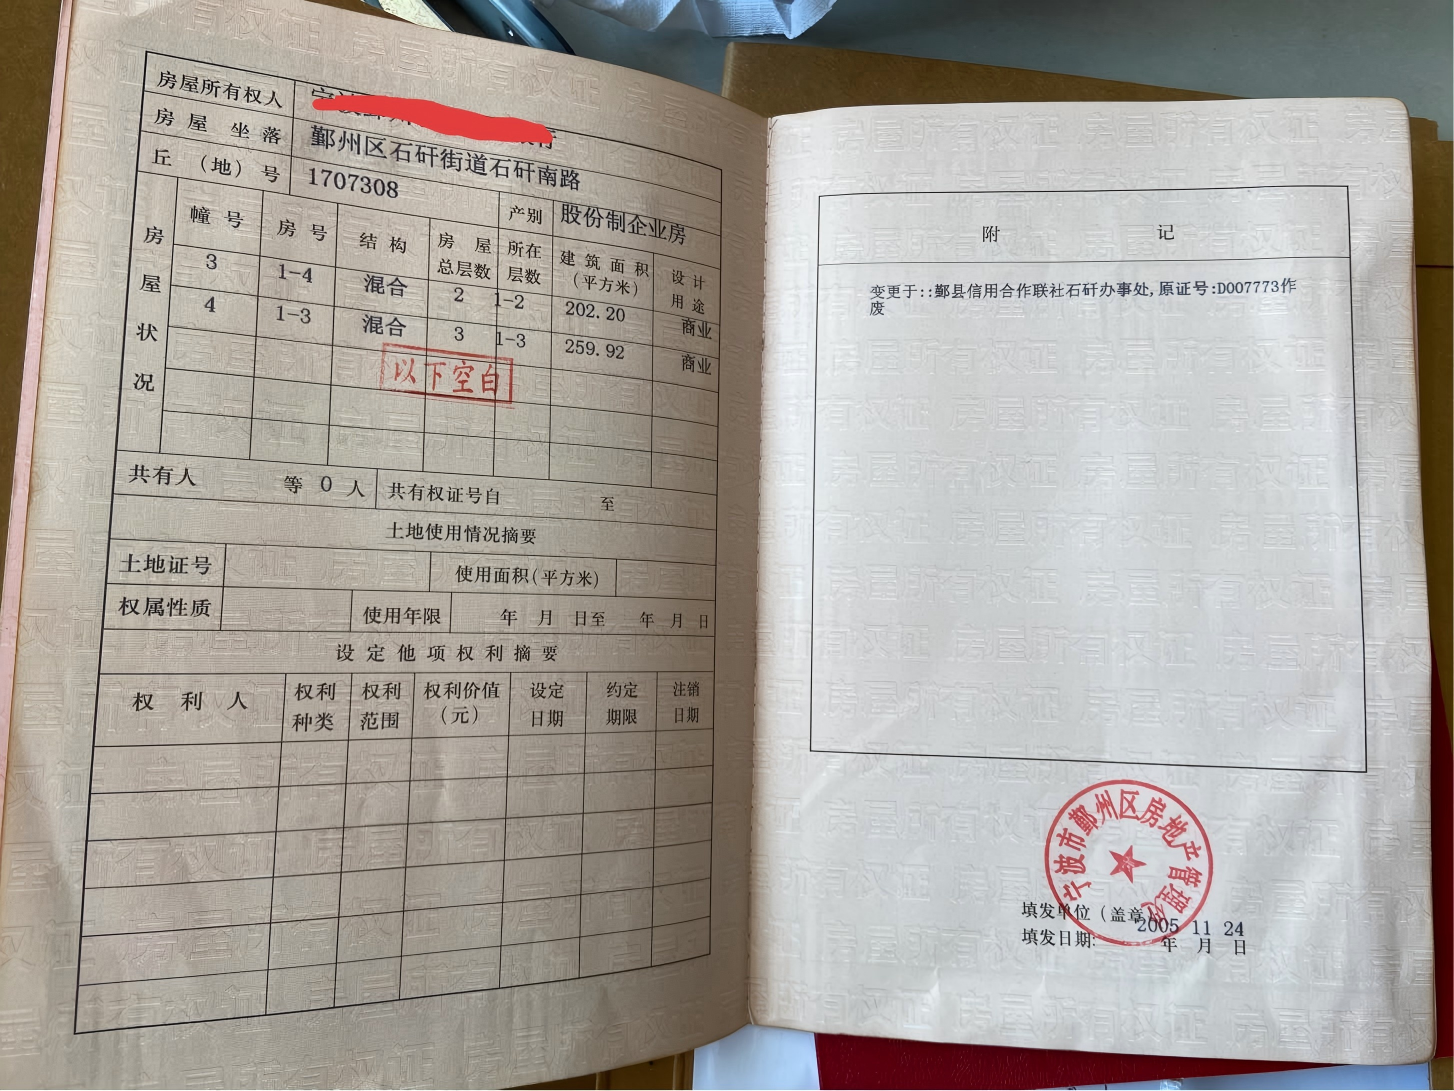 房屋所有权人
房屋坐落 鄞州区石矸街道石矸南路
丘（地）号 1707308 产别 股份制企业房
房屋状况
幢号 房号 结构 房屋总层数 所在层数 建筑面积（平方米） 设计用途
3 1-4 混合 2 1-2 202.20 商业
4 1-3 混合 3 1-3 259.92 商业
以下空白
共有人 等 0 人 共有权证号自 至
土地使用情况摘要
土地证号 使用面积(平方米)
权属性质 使用年限 年 月 日至 年 月 日
设定他项权利摘要
权利人 权利种类 权利范围 权利价值（元） 设定日期 约定期限 注销日期
附 记
变更于::鄞县信用合作联社石矸办事处,原证号:D007773作
废
宁波市鄞州区房地产管理处
填发单位（盖章）
填发日期: 2005 年 11 月 24 日